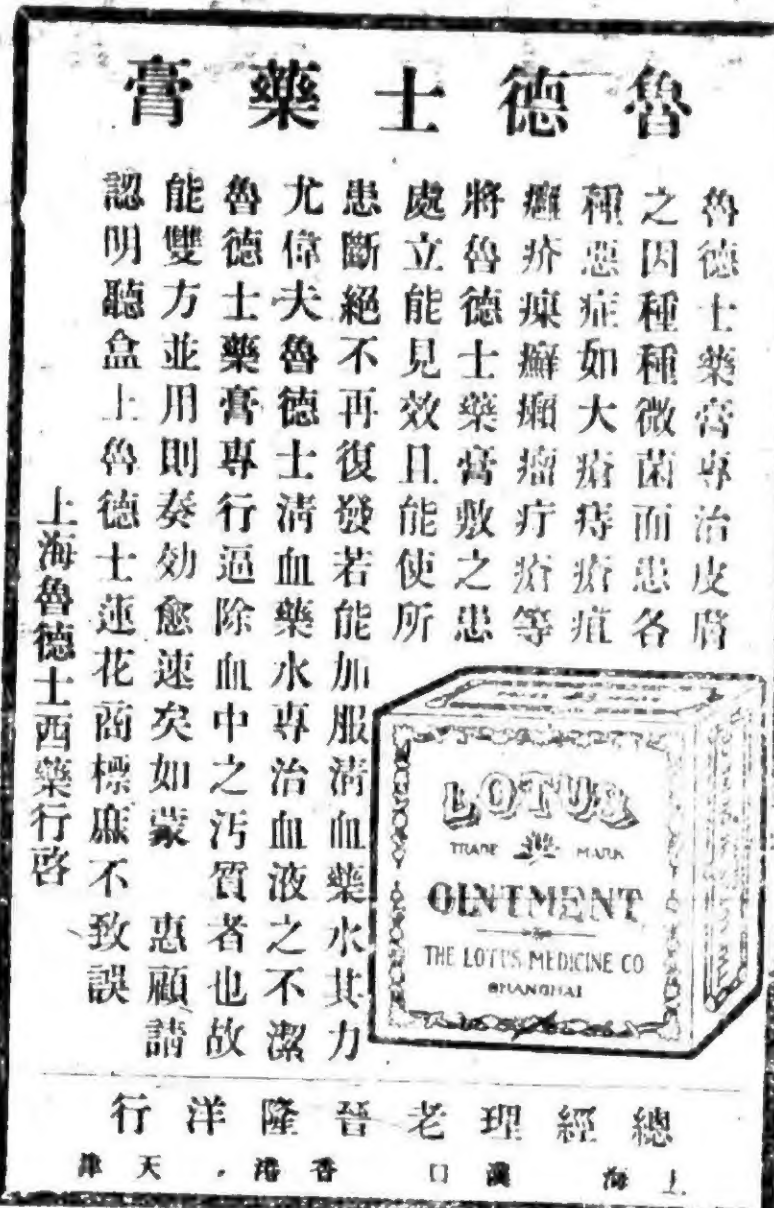 魯德士藥膏
魯德士藥膏專治皮膚
之因種種微菌而患各
種惡症如大瘡痔瘡疽
癰疥癩癬癩瘤疔瘡等
將魯德士藥膏敷之患
處立能見效且能使所
患斷絕不再復發若能加服清血藥水其力
尤偉夫魯德士清血藥水專治血液之不潔
魯德士藥膏專行逼除血中之污質者也故
能雙方並用則奏効愈速矣如蒙 惠顧請
認明聽盒上魯德士蓮花商標庶不致誤
上海魯德士西藥行啓
LOTUS
TRADE MARK
OINTMENT
THE LOTUS MEDICINE CO
SHANGHAI
總經理老晉隆洋行
上海 漢口 香港 天津